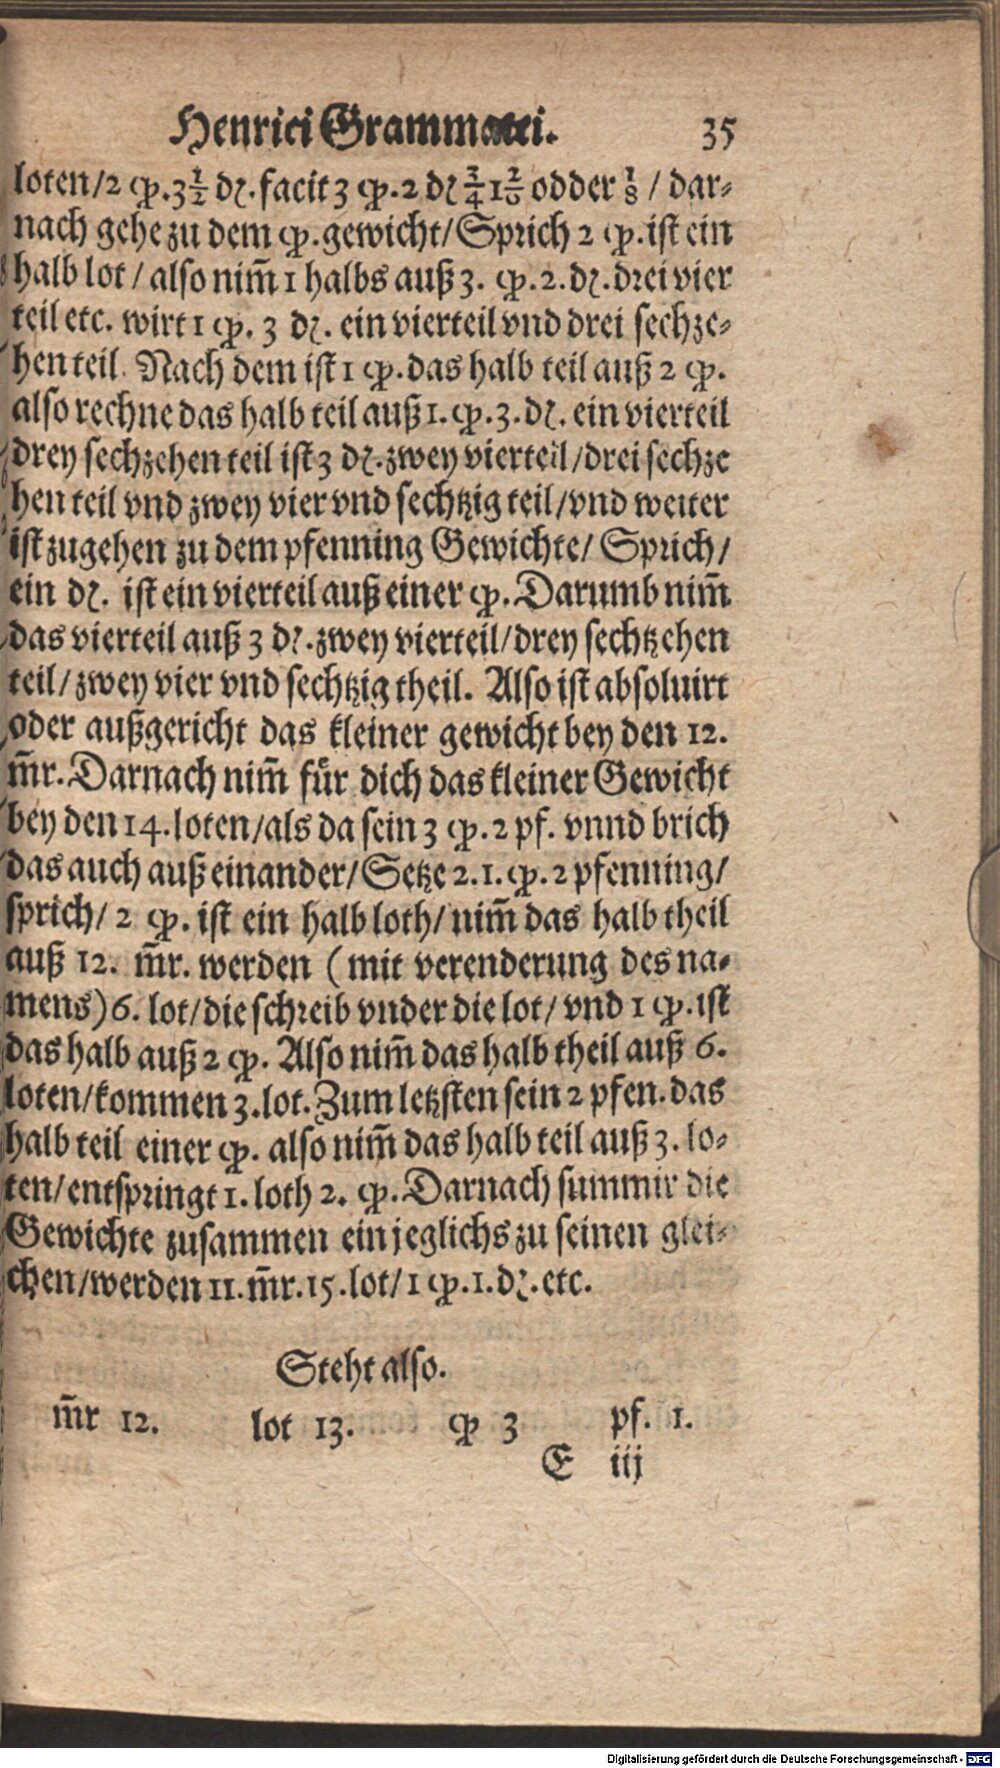 Henrici Grammatei. 35
loten/2 qр.3½ dɀ. facit 3 qр.2 dɀ ¾ 1 odder ⅛ / dar⸗
nach gehe zu dem qр.gewicht/Sprich 2 qр.ist ein
halb lot/ also nim̃ 1 halbs auß 3. qр.2.dɀ.drei vier
teil etc. wirt 1 qр. 3 dɀ. ein vierteil vnd drei sechze⸗
hen teil. Nach dem ist 1 qр.das halb teil auß 2 qр.
also rechne das halb teil auß 1. qр.3.dɀ. ein vierteil
drey sechzehen teil ist 3 dɀ.zwey vierteil/drei sechze
hen teil vnd zwey vier vnd sechtzig teil/vnd weiter
ist zugehen zu dem pfenning Gewichte/ Sprich/
ein dɀ. ist ein vierteil auß einer qр.Darumb nim̃
das vierteil auß 3 dɀ.zwey vierteil/drey sechtzehen
teil/zwey vier vnd sechtzig theil. Also ist absoluirt
oder außgericht das kleiner gewicht bey den 12.
m̃r.Darnach nim̃ fůr dich das kleiner Gewicht
bey den 14.loten/als da sein 3 qр.2 pf. vnnd brich
das auch auß einander/Setze 2.1.qр.2 pfenning/
sprich/ 2 qр. ist ein halb loth/nim̃ das halb theil
auß 12. m̃r. werden (mit verenderung des na⸗
mens)6. lot/die schreib vnder die lot/ vnd 1 qр.ist
das halb auß 2 qр. Also nim̃ das halb theil auß 6.
loten/kommen 3.lot.Zum letzsten sein 2 pfen.das
halb teil einer qр. also nim̃ das halb teil auß 3. lo⸗
ten/entspringt 1. loth 2. qр.Darnach summir die
Gewichte zusammen ein jeglichs zu seinen glei⸗
chen/werden 11.m̃r.15.lot/1 qр.1.dɀ.etc.
Steht also.
m̃r 12. lot 13. qр 3 pf. 1.
E iij
Digitalisierung gefördert durch die Deutsche Forschungsgemeinschaft - DFG